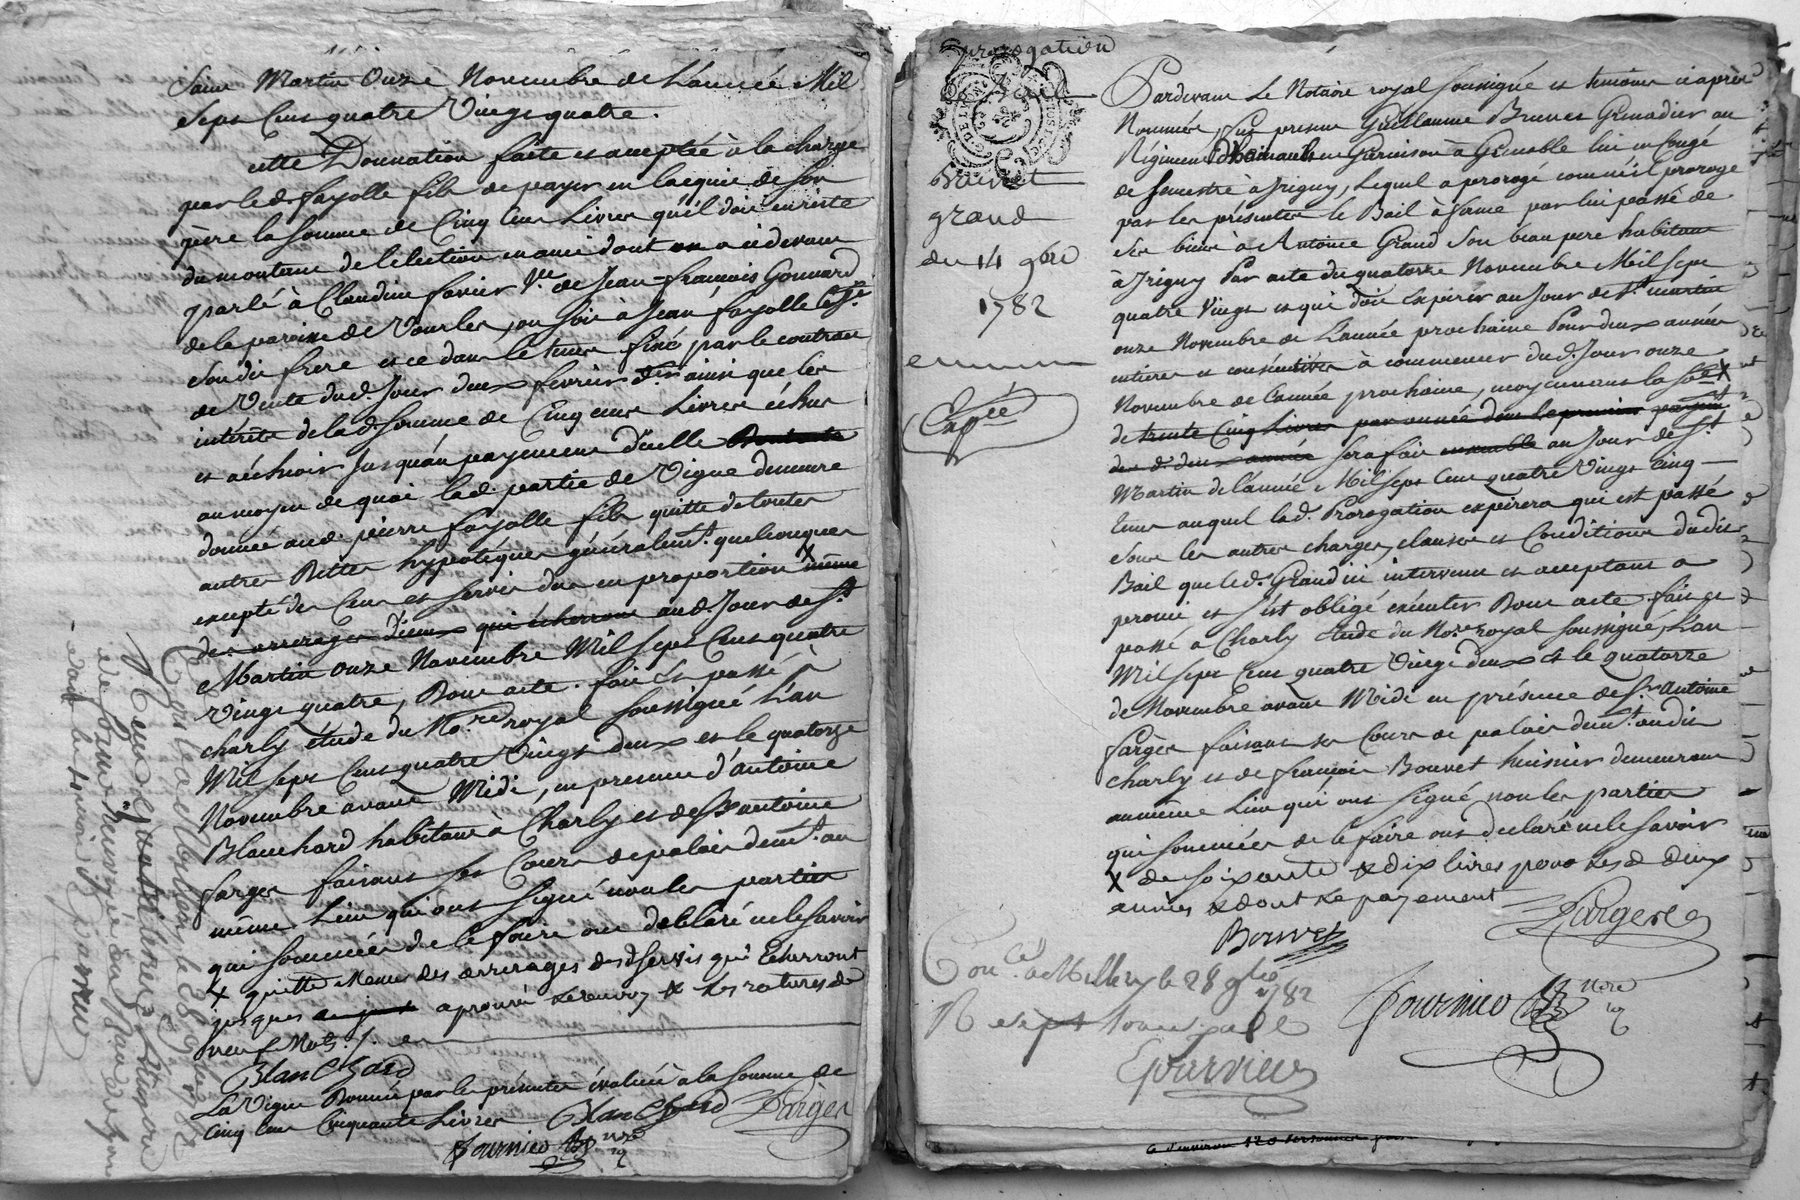 Saint Martin Onze Novembre de L'année Mil
Sept Cens quatre Vingt quatre.
cette Donnation faite et acceptée à la charge
par led. fayolle fils de payer en lacquit de son
père la somme de Cinq Cens Livres qu'il doit en reste
du montant de l'election en amie dont on a cidevant
parlé à Claudine favier Ve. de Jean-francois Gonnard
de la paroisse de Vourles, ou soit à Jean fayolle
Son dit frere et ce dans le terme fixé par le contrat
de Vente du d. Jour deux fevrier der. ainsi que les
intérêts de lad. somme de Cinq cens Livres échus
et à échoir jusqu'au payement d'icelle
au moyen de quoi lad. partie de Vigne demeure
donnée aud. pierre fayolle fils quitte de toutes
autres Dettes hypotéques généralemt. quelconques
excepté des Cens et servis dus en proportion X même
des arrerages d'iceux qui écherront aud. Jour de St.
Martin onze Novembre Mil sept Cens quatre
Vingt quatre, Dont acte. fait et passé à
charly étude du No.re royal soussigné L'an
Mil sept Cens quatre Vingt deux et le quatorze
Novembre avant Midi, en presence d'antoine
Blanchard habitant à Charly et de Sr. antoine
farges faisant ses Cours de palais demt. au
même Lieu qui ont signé non les parties
qui sommées de le faire ont déclaré ne le savoir
X quitte même des arrerages desd. servis qui Echerront
jusques apouvé renvoy & les ratures de
neuf Mots. /.
Blanchard
La Vigne Donnée par les présentes évaluée à la somme de
Cinq Cens Cinquante Livres Blanchard Farges
fournier Nore
prorogation
de Bail
Brunet
grand
du 14 9bre
1782
Expée
Pardevant Le Notaire royal soussigné et temoins ciaprès
Nommés, fut present Guillaume Brunet Grenadier au
Régiment D'hainault en Garnison à Grenoble lui en Congé
de semestre à Irigny, Lequel a prorogé comme il proroge
par les présentes le Bail à ferme par lui passé de
ses biens à Antoine Grand Son beau pere habitant
à Irigny Par acte du quatorze Novembre Mil sept
quatre Vingt et qui doit Expirer au Jour de St. martin
onze Novembre de L'année prochaine Pour deux années
entieres et consécutives à commencer dud. Jour onze
Novembre de L'année prochaine, moyennant la Soe. X
de trente Cinq Livres par année dont le premier payemt.
des d. deux années sera fait ensemble au Jour de St.
Martin de L'année Mil sept Cens quatre Vingt Cinq
tems auquel lad. Prorogation expirera qui est passée
sous les autres charges, clauses et Conditions dudit
Bail que led. Grand ici intervenu et aceptant a
promis et s'est obligé exécuter Dont acte. fait et
passé à Charly étude du No.re royal soussigné, L'an
Mil sept Cens quatre Vingt deux et le quatorze
de Novembre avant Midi en présence de Sr. antoine
farges faisant ses Cours de palais demt. audit
charly et de françois Bouvet huissier demeurant
au même Lieu qui ont signé non les parties
qui sommées de le faire ont declaré ne le savoir
X de soixante & dix livres pour lesd. deux
années & dont le payement
Bouvet Farges
fournier Nore
Con.lé à Millery le 28 9bre 1782
R sept sous